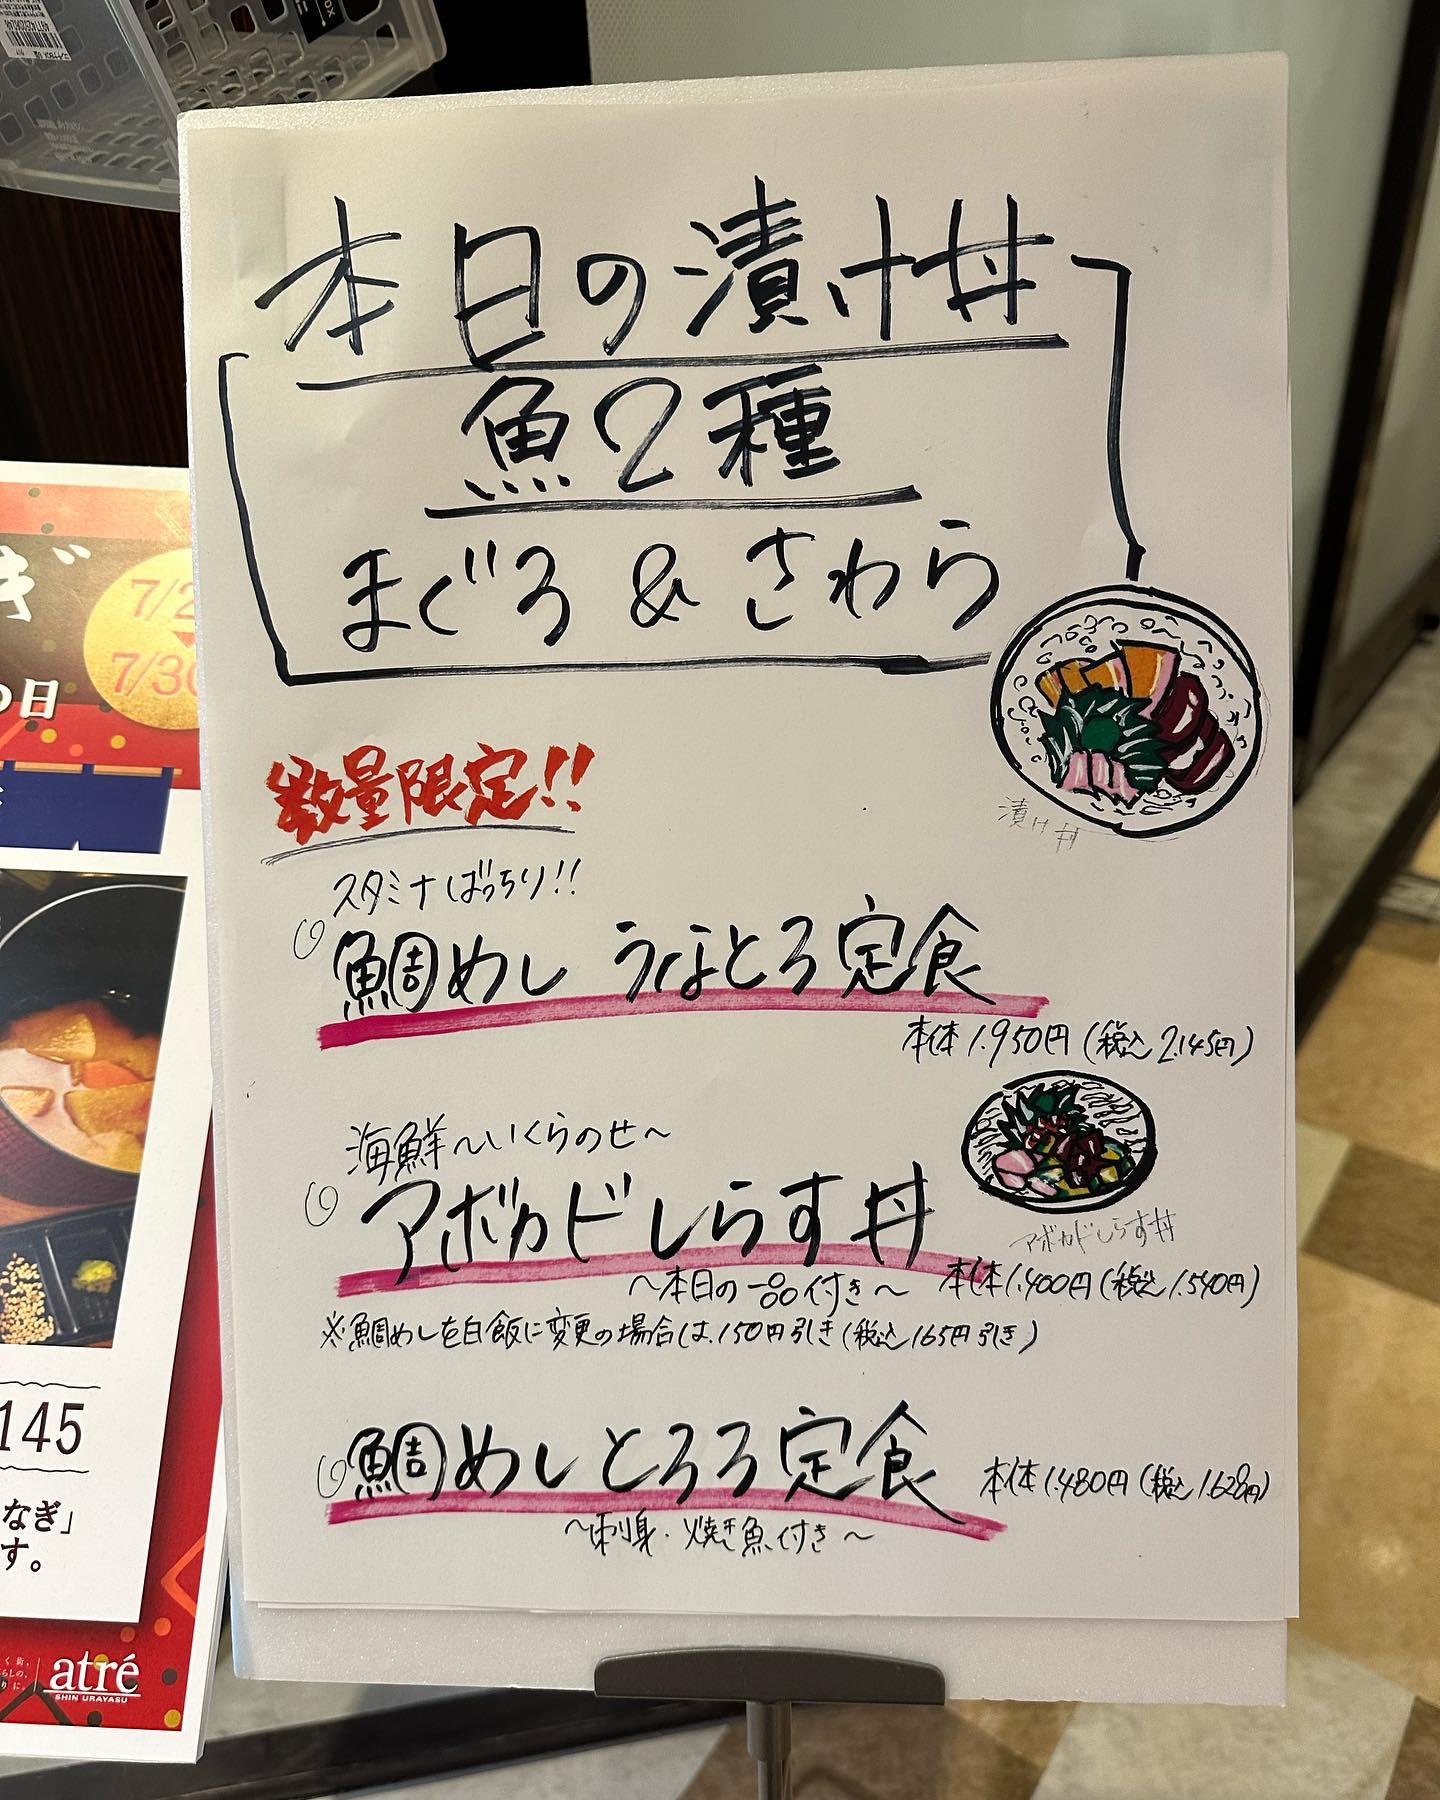 本日の漬け丼
魚2種
まぐろ & さわら
漬け丼
数量限定!!
スタミナばっちり!!
鯛めし うなとろ定食
本体1.950円(税込2.145円)
海鮮〜いくらのせ〜
アボカドしらす丼
アボカドしらす丼
〜本日の一品付き〜 本体1.400円(税込1.540円)
※鯛めしを白飯に変更の場合は、150円引き(税込165円引き)
鯛めしとろろ定食
本体1.480円(税込1.628円)
〜刺身・焼き魚付き〜
7/2
7/30
の日
145
なぎ」
す。
atré
SHIN URAYASU